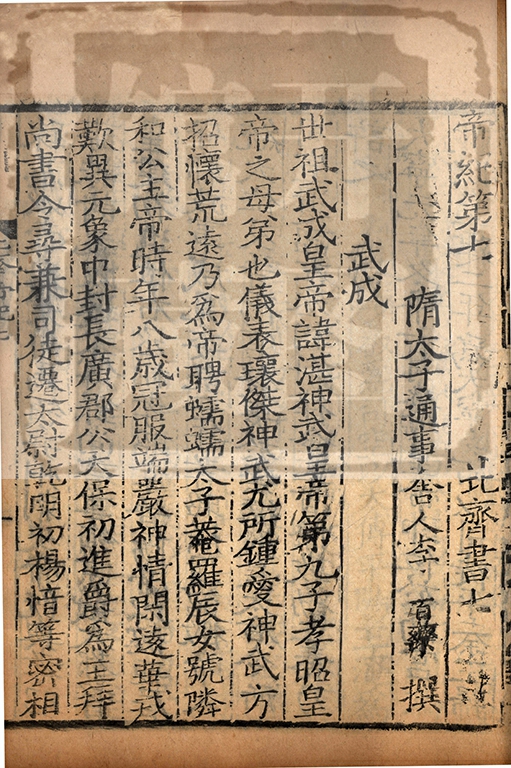 帝紀第七 北齊書七
隋太子通事舍人李百藥 撰
武成
世祖武成皇帝諱湛神武皇帝第九子孝昭皇
帝之母弟也儀表瓌傑神武尤所鍾愛神武方
招懷荒遠乃爲帝聘蠕蠕太子菴羅辰女號隣
和公主帝時年八歲冠服端嚴神情閑遠華戎
歎異元象中封長廣郡公天保初進爵爲王拜
尚書令尋兼司徒遷太尉乾明初楊愔等密相